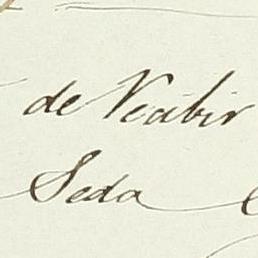 de Recibir
Seda